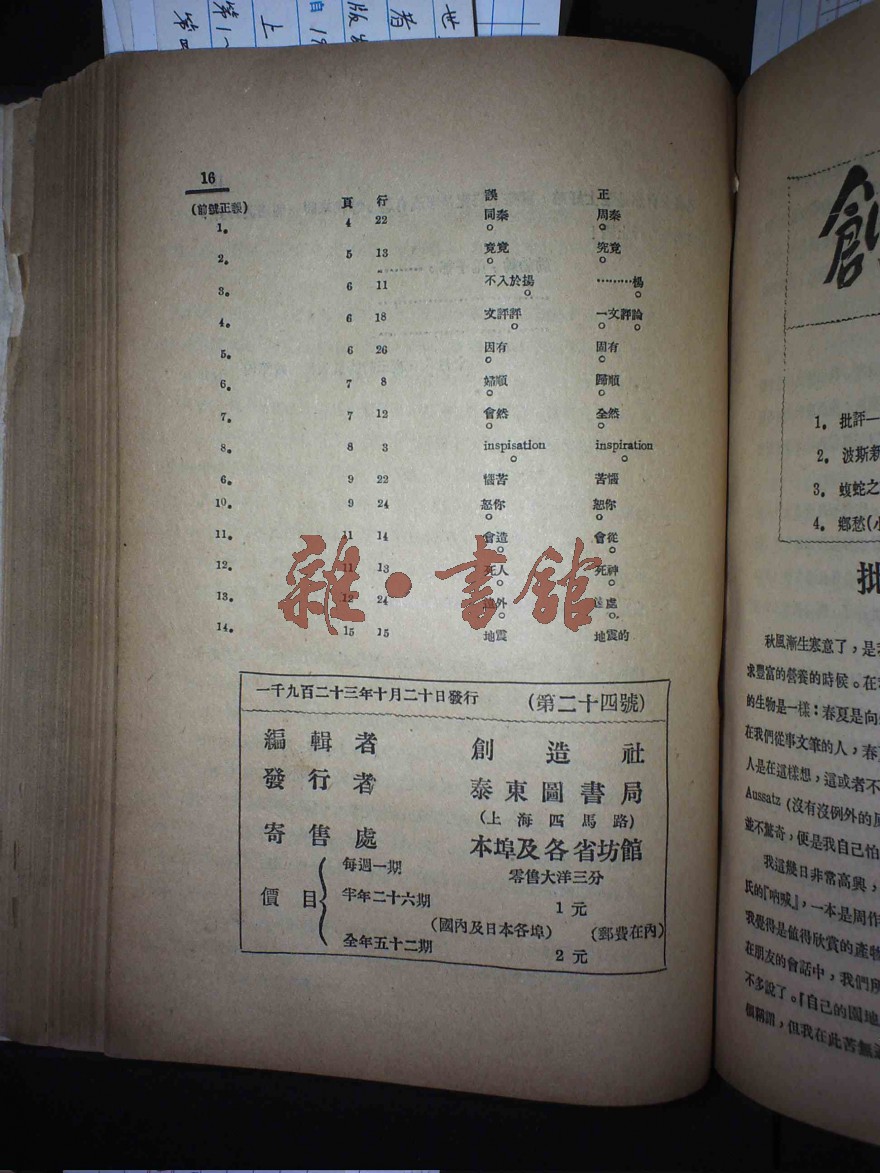 世
著
版
自19
上
第1
第四
16
(前號正誤) 頁 行 誤 正
1。 4 22 同秦 周秦
2。 5 13 竟竟 究竟
3。 6 11 不入於揚 ………楊
4。 6 18 文評評 一文評論
5。 6 26 因有 固有
6。 7 8 婦順 歸順
7。 7 12 會然 全然
8。 8 3 inspisation inspiration
6。 9 22 惱苦 苦惱
10。 9 24 怒你 恕你
11。 11 14 會造 會從
12。 11 13 死人 死神
13。 12 24 遠外 遠處
14。 15 15 地震 地震的
雜·書館
一千九百二十三年十月二十日發行 (第二十四號)
編輯者 創造社
發行者 泰東圖書局
(上海四馬路)
寄售處 本埠及各省坊館
價目 每週一期 零售大洋三分
半年二十六期 1元
(國內及日本各埠) (郵費在內)
全年五十二期 2元
創
1。批評一
2。波斯新
3。蝮蛇之
4。鄉愁(小
批
秋風漸生寒意了,是
求豐富的營養的時候。在
的生物是一樣:春夏是向
在我們從事文筆的人,春
人是在這樣想,這或者不
Aussatz (沒有沒例外的
並不驚奇,便是我自己怕
我這幾日非常高興,
氏的『吶喊』,一本是周作
我覺得是值得欣賞的產物
在朋友的會話中,我們所
不多說了。『自己的園地
個稱謂,但我在此苦無適